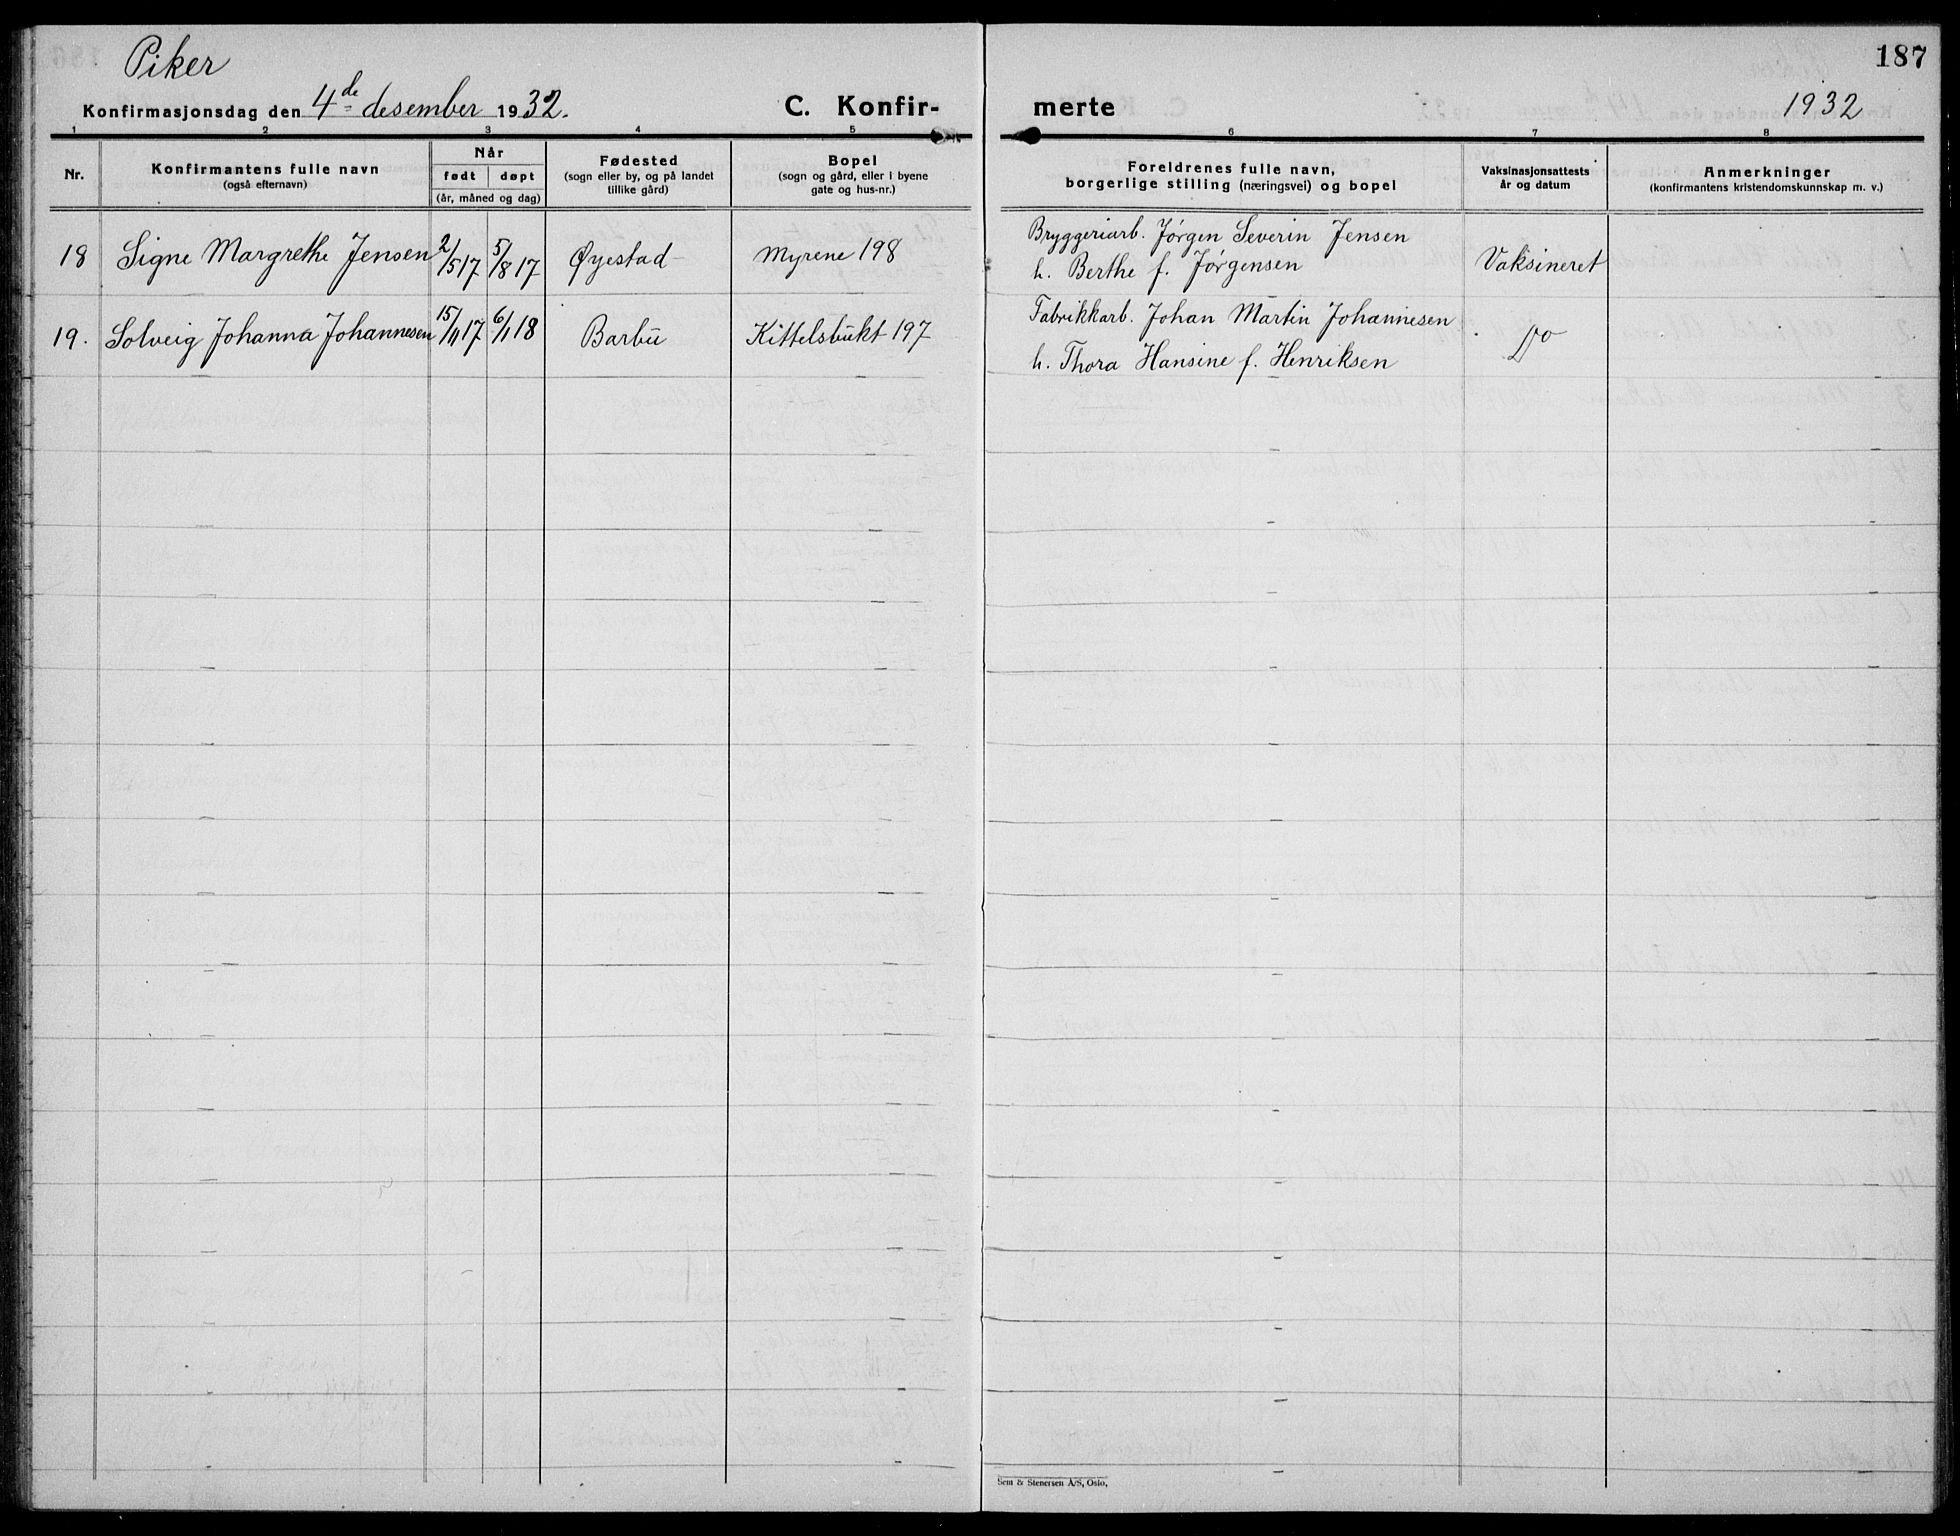 Piker
187
Konfirmasjonsdag den 4de desember 1932.
C. Konfir-
merte
1932
1 2 3 4 5 6 7 8
Nr.
Konfirmantens fulle navn
(også efternavn)
Når
født døpt
(år, måned og dag)
Fødested
(sogn eller by, og på landet
tillike gård)
Bopel
(sogn og gård, eller i byene
gate og hus-nr.)
Foreldrenes fulle navn,
borgerlige stilling (næringsvei) og bopel
Vaksinasjonsattests
år og datum
Anmerkninger
(konfirmantens kristendomskunnskap m. v.)
18 Signe Margrethe Jensen 2/5 17 5/8 17 Øyestad Myrene 198
Bryggeriarb. Jørgen Severin Jensen
h. Berthe f. Jørgensen
Vaksineret
19. Solveig Johanna Johannesen 15/11 17 6/1 18 Barbu Kittelsbukt 197
Fabrikkarb. Johan Martin Johannesen
h. Thora Hansine f. Henriksen
Do
Sem & Stenersen A/S, Oslo,